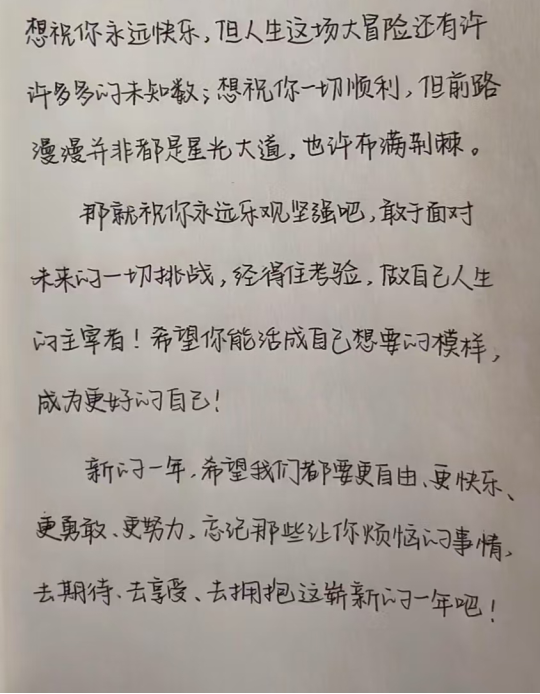 想祝你永远快乐，但人生这场大冒险还有许
许多多的未知数；想祝你一切顺利，但前路
漫漫并非都是星光大道，也许布满荆棘。
那就祝你永远乐观坚强吧，敢于面对
未来的一切挑战，经得住考验，做自己人生
的主宰者！希望你能活成自己想要的模样，
成为更好的自己！
新的一年，希望我们都要更自由、更快乐、
更勇敢、更努力，忘记那些让你烦恼的事情，
去期待、去享受、去拥抱这崭新的一年吧！